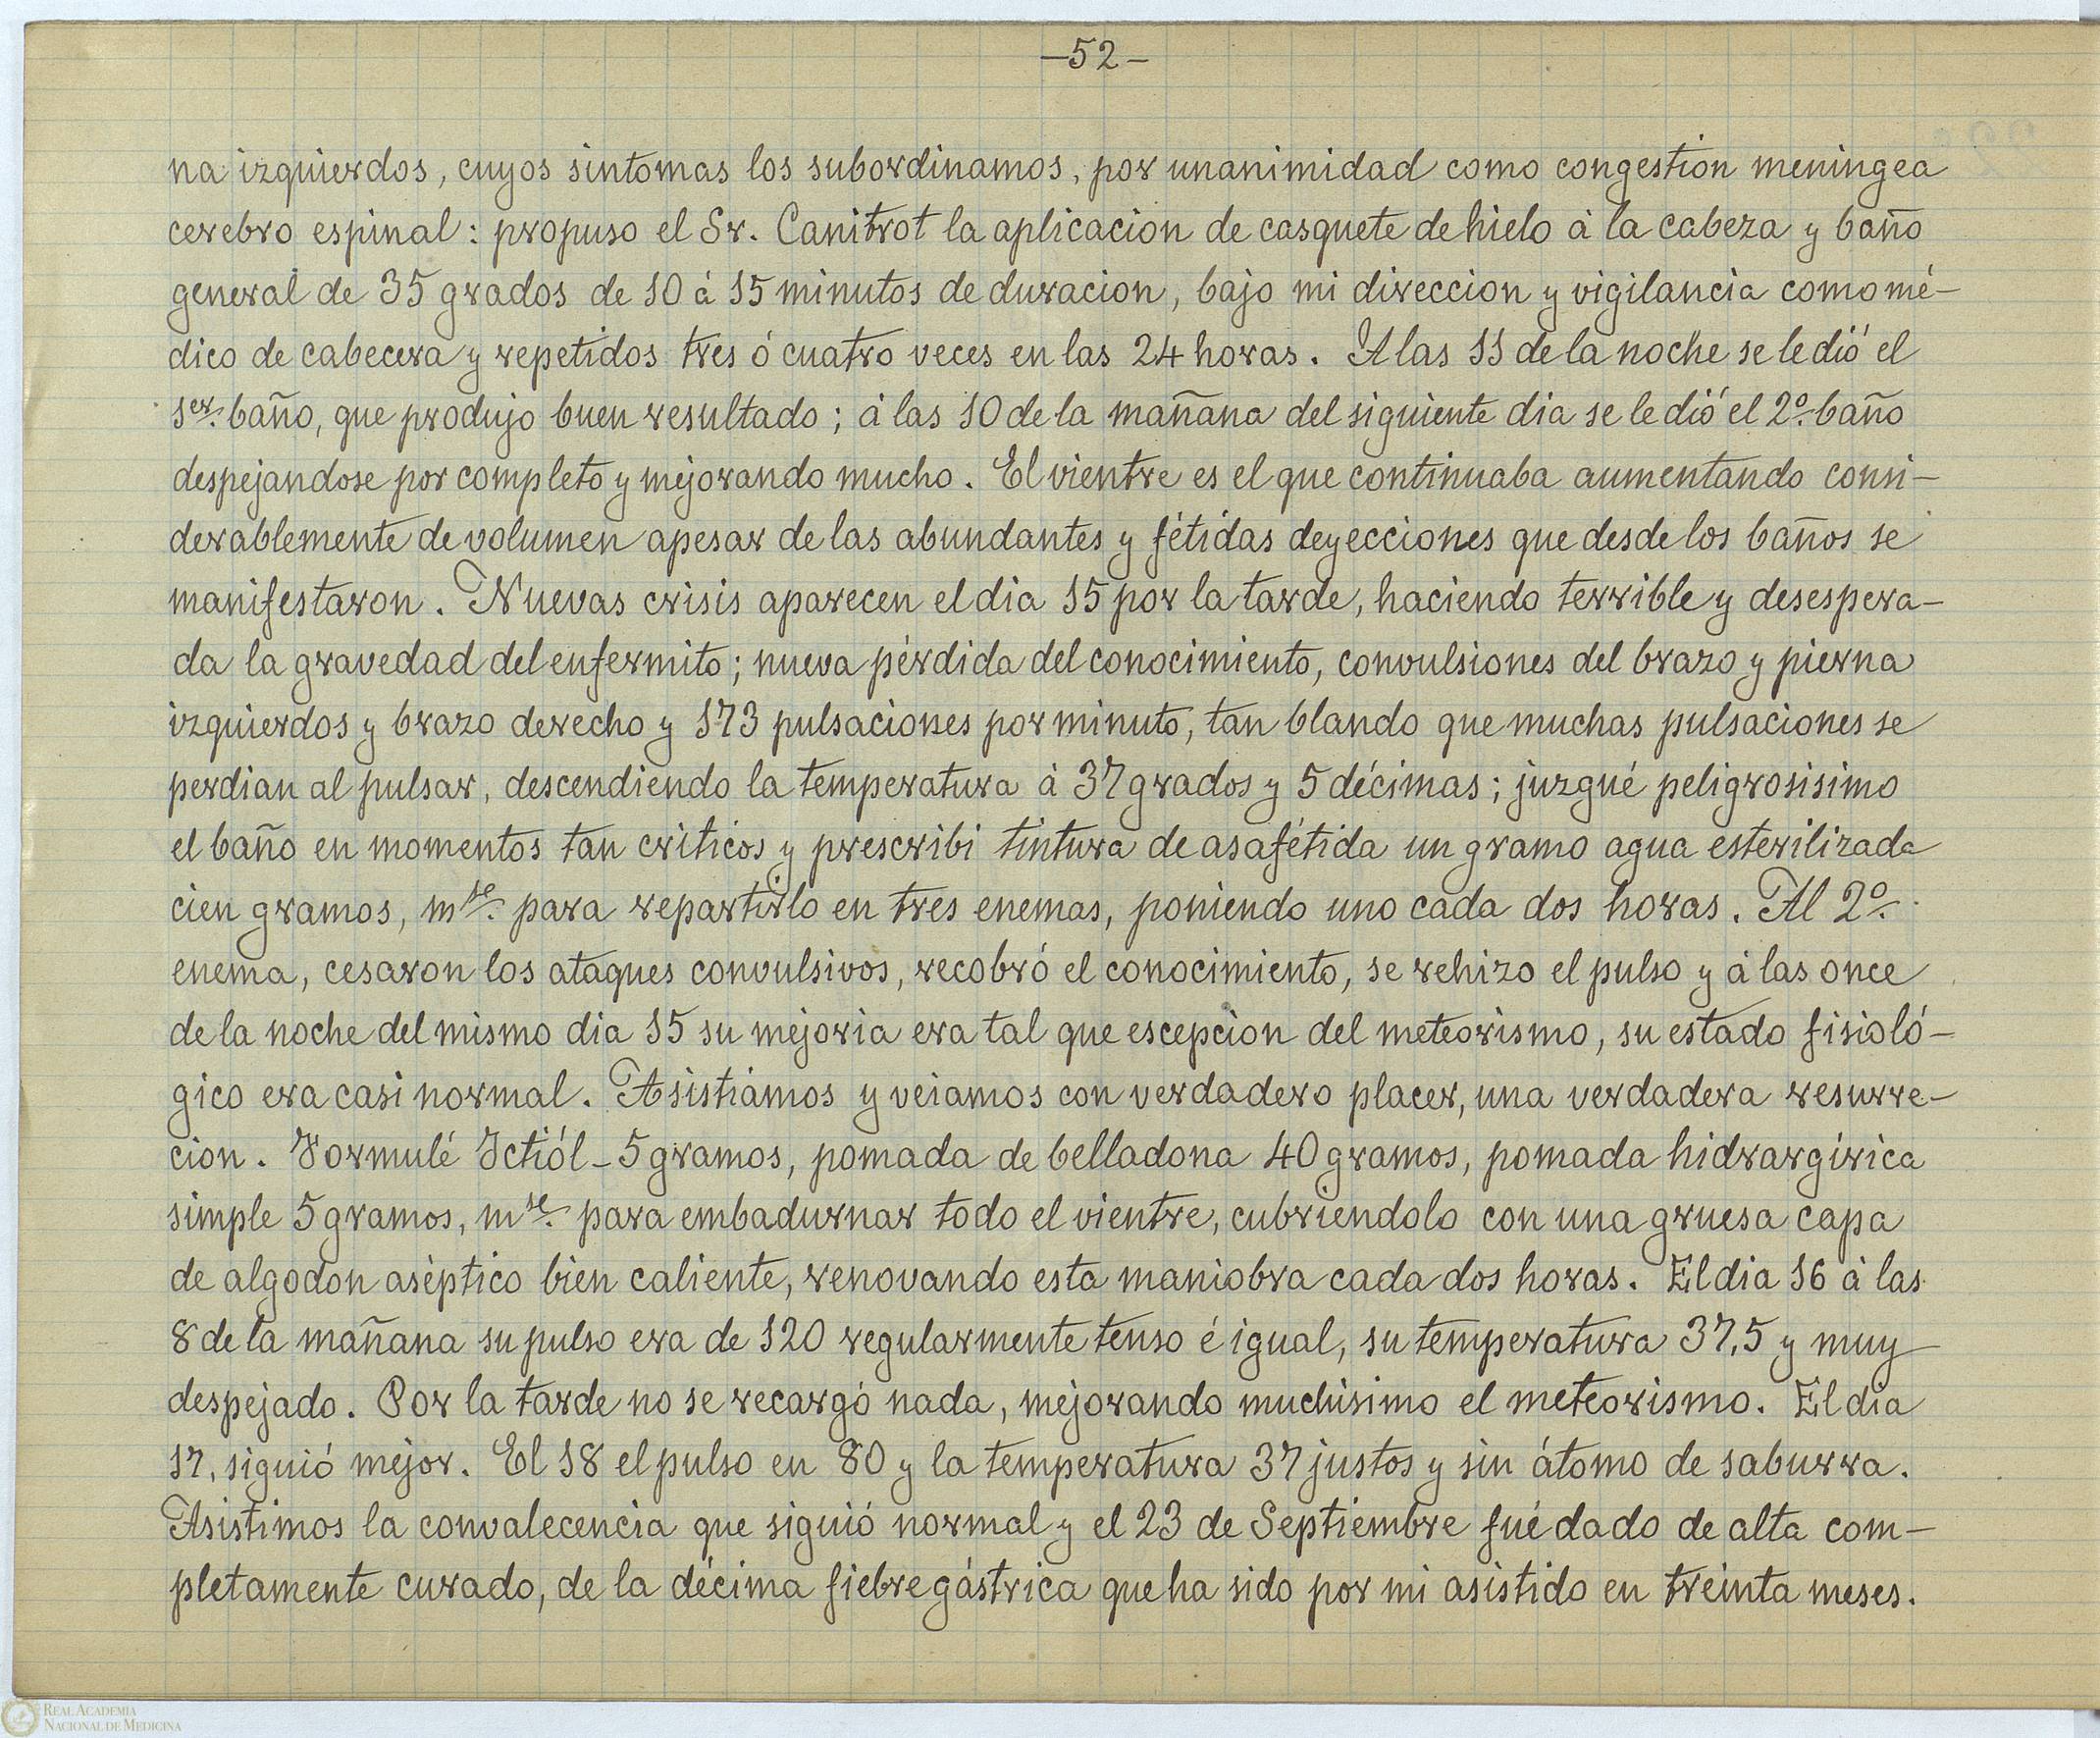 —52—
na izquierdos, cuyos sintomas los subordinamos, por unanimidad como congestion meningea
cerebro espinal: propuso el Sr. Canitrot la aplicacion de casquete de hielo á la cabeza y baño
general de 35 grados de 10 á 15 minutos de duracion, bajo mi direccion y vigilancia como mé-
dico de cabecera y repetidos tres ó cuatro veces en las 24 horas. A las 11 de la noche se le dió el
1er. baño, que produjo buen resultado; á las 10 de la mañana del siguiente dia se le dió el 2º. baño
despejandose por completo y mejorando mucho. El vientre es el que continuaba aumentando consi-
derablemente de volumen apesar de las abundantes y fétidas deyecciones que desde los baños se
manifestaron. Nuevas crisis aparecen el dia 15 por la tarde, haciendo terrible y desespera-
da la gravedad del enfermito; nueva pérdida del conocimiento, convulsiones del brazo y pierna
izquierdos y brazo derecho y 173 pulsaciones por minuto, tan blando que muchas pulsaciones se
perdian al pulsar, descendiendo la temperatura á 37 grados y 5 décimas; juzgué peligrosisimo
el baño en momentos tan criticos y prescribi tintura de asafétida un gramo agua esterilizada
cien gramos, mse. para repartirlo en tres enemas, poniendo uno cada dos horas. Al 2º.
enema, cesaron los ataques convulsivos, recobró el conocimiento, se rehizo el pulso y á las once
de la noche del mismo dia 15 su mejoria era tal que escepcion del meteorismo, su estado fisioló-
gico era casi normal. Asistiámos y veiamos con verdadero placer, una verdadera resurre-
cion. Formulé Ictiól - 5 gramos, pomada de belladona 40 gramos, pomada hidrargírica
simple 5 gramos, mse. para embadurnar todo el vientre, cubriendolo con una gruesa capa
de algodon aséptico bien caliente, renovando esta maniobra cada dos horas. El dia 16 á las
8 de la mañana su pulso era de 120 regularmente tenso é igual, su temperatura 37,5 y muy
despejado. Por la tarde no se recargó nada, mejorando muchisimo el meteorismo. El dia
17, siguió mejor. El 18 el pulso en 80 y la temperatura 37 justos y sin átomo de saburra.
Asistimos la convalecencia que siguió normal y el 23 de Septiembre fué dado de alta com-
pletamente curado, de la décima fiebre gástrica que ha sido por mi asistido en treinta meses.
REAL ACADEMIA
NACIONAL DE MEDICINA